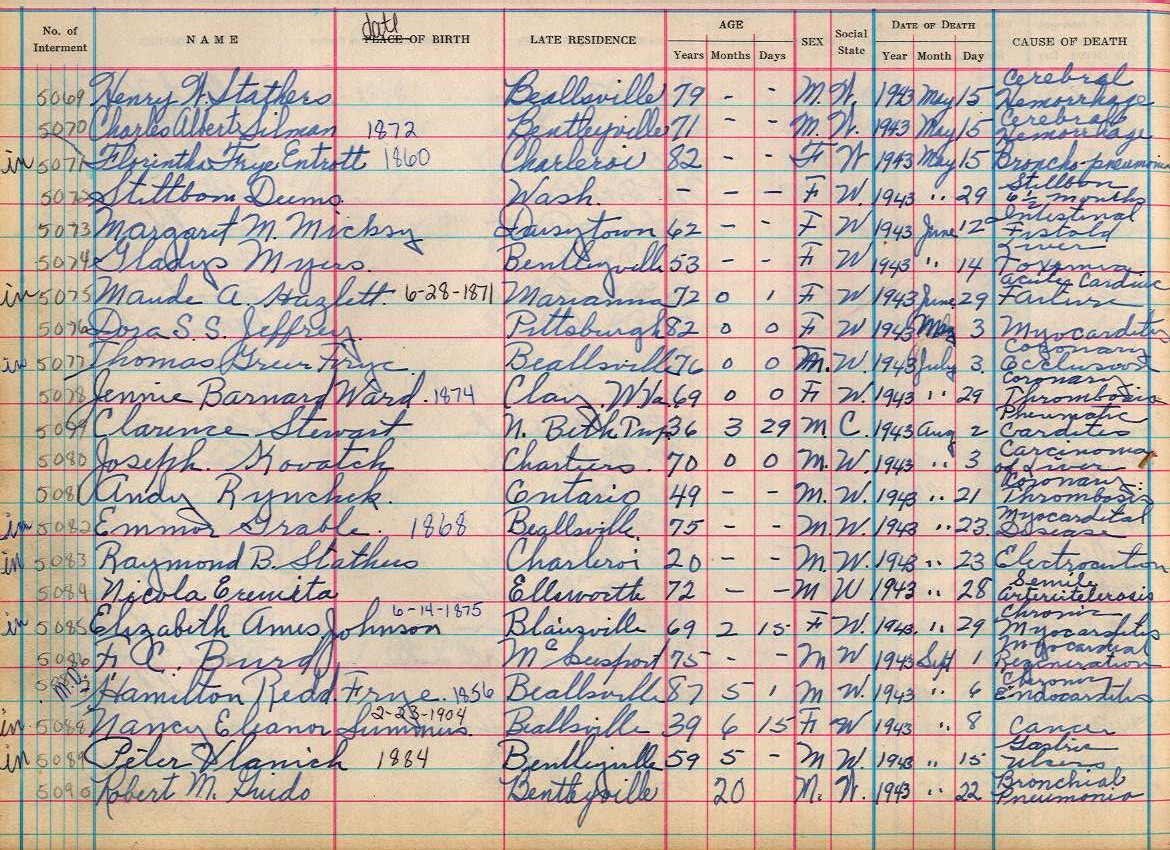 No. of Interment NAME date PLACE OF BIRTH LATE RESIDENCE AGE Years Months Days SEX Social State DATE OF DEATH Year Month Day CAUSE OF DEATH
5069 Henry W. Stathers Beallsville 79 - - M. W. 1943 May 15 Cerebral Hemorrhage
5070 Charles Albert Silman 1872 Bentleyville 71 - - M. W. 1943 May 15 Cerebral Hemorrhage
in 5071 Florintha Frye Entrott 1860 Charleroi 82 - - F W 1943 May 15 Broncho-pneumonia
5072 Stillborn Deems Wash. - - - F W. 1943 " 29 Stillborn 6½ months
5073 Margaret M. Micksy Daisytown 62 - - F W 1943 June 12 Intestinal Fistold
5074 Gladys Myers. Bentleyville 53 - - F W 1943 " 14 Liver Toxemia
in 5075 Maude A. Hazlett. 6-28-1871 Marianna 72 0 1 F W 1943 June 29 Acute Cardiac Failure
5076 Dora S. S. Jeffrey Pittsburgh 82 0 0 F W 1943 May 3 Myocarditis
in 5077 Thomas Greer Frye. Beallsville 76 0 0 M. W. 1943 July 3. Coronary Occlusion
5078 Jennie Barnard Ward. 1874 Clay, W.Va 69 0 0 F W. 1943 " 29 Coronary Thrombosis
5079 Clarence Stewart N. Beth Twp. 36 3 29 M. C. 1943 Aug 2 Pneumatic Carditis
5080 Joseph. Kovatch Chartiers. 70 0 0 M. W. 1943 " 3 Carcinoma of Liver
5081 Andy Rynchek. Ontario 49 - - M. W. 1943 " 21 Coronary Thrombosis
in 5082 Emmor Grable. 1868 Beallsville. 75 - - M W. 1943 " 23. Myocardital Disease
in 5083 Raymond B. Stathers Charleroi 20 - - M. W. 1943 " 23 Electrocution
5084 Nicola Eremita Ellsworth 72 - - M W 1943 " 28 Senile Arteriosclerosis
in 5085 Elizabeth Ames Johnson 6-14-1875 Blainsville 69 2 15 F W. 1943. " 29 Chronic Myocarditis
5086 F. C. Burd McKeesport 75 - - M W 1943 Sept 1 Myocardial Degeneration
M.D. 5087 Hamilton Redd Frye. 1856 Beallsville 87 5 1 M W. 1943 " 6 Chronic Endocarditis
in 5088 Nancy Eleanor Summers 2-23-1904 Beallsville 39 6 15 F W 1943 " 8 Cancer
in 5089 Peter Planich 1884 Bentleyville 59 5 - M W. 1943 " 15 Gastric Ulcers
5090 Robert M. Guido Bentleyville 20 M. W. 1943 " 22 Bronchial Pneumonia